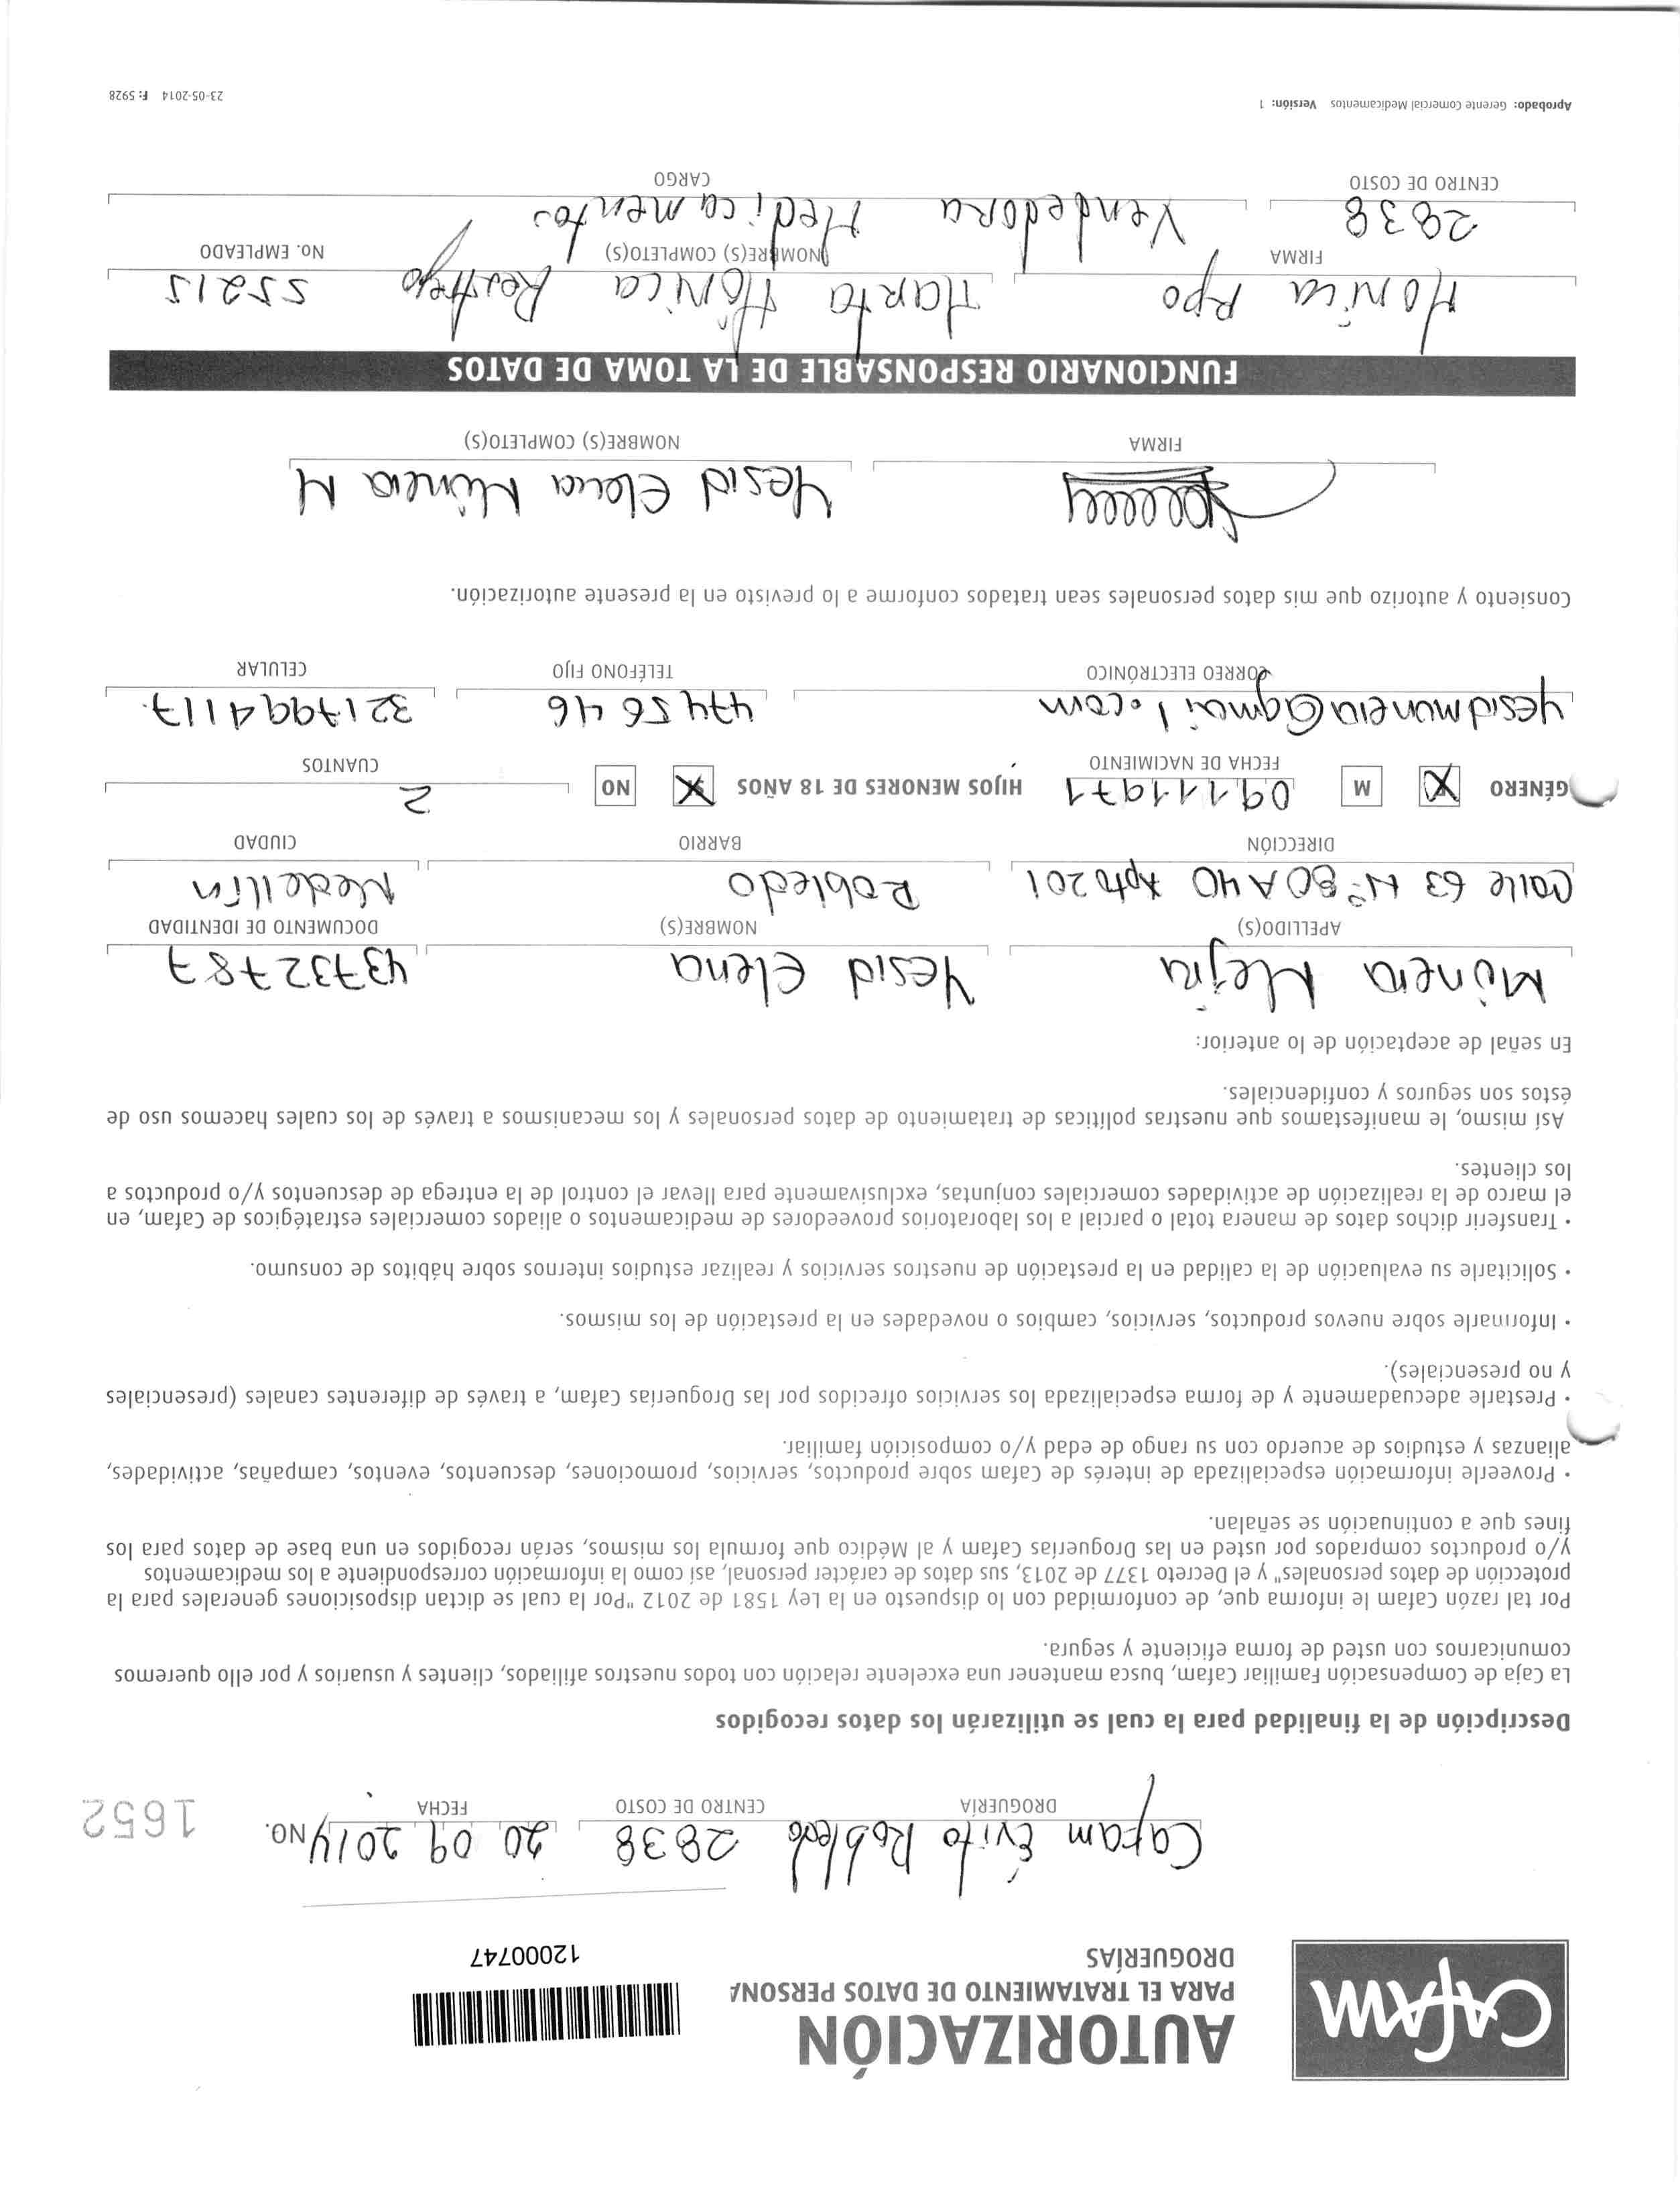 CAFAM
AUTORIZACIÓN
PARA EL TRATAMIENTO DE DATOS PERSONA
DROGUERÍAS
12000747
Cafam Éxito Robledo 2838 20 09 2014 NO. 1652
DROGUERÍA CENTRO DE COSTO FECHA
Descripción de la finalidad para la cual se utilizarán los datos recogidos
La Caja de Compensación Familiar Cafam, busca mantener una excelente relación con todos nuestros afiliados, clientes y usuarios y por ello queremos
comunicarnos con usted de forma eficiente y segura.
Por tal razón Cafam le informa que, de conformidad con lo dispuesto en la Ley 1581 de 2012 "Por la cual se dictan disposiciones generales para la
protección de datos personales" y el Decreto 1377 de 2013, sus datos de carácter personal, así como la información correspondiente a los medicamentos
y/o productos comprados por usted en las Droguerías Cafam y al Médico que formula los mismos, serán recogidos en una base de datos para los
fines que a continuación se señalan.
• Proveerle información especializada de interés de Cafam sobre productos, servicios, promociones, descuentos, eventos, campañas, actividades,
alianzas y estudios de acuerdo con su rango de edad y/o composición familiar.
• Prestarle adecuadamente y de forma especializada los servicios ofrecidos por las Droguerías Cafam, a través de diferentes canales (presenciales
y no presenciales).
• Informarle sobre nuevos productos, servicios, cambios o novedades en la prestación de los mismos.
• Solicitarle su evaluación de la calidad en la prestación de nuestros servicios y realizar estudios internos sobre hábitos de consumo.
• Transferir dichos datos de manera total o parcial a los laboratorios proveedores de medicamentos o aliados comerciales estratégicos de Cafam, en
el marco de la realización de actividades comerciales conjuntas, exclusivamente para llevar el control de la entrega de descuentos y/o productos a
los clientes.
Así mismo, le manifestamos que nuestras políticas de tratamiento de datos personales y los mecanismos a través de los cuales hacemos uso de
éstos son seguros y confidenciales.
En señal de aceptación de lo anterior:
Múnera Mejía Yesid Elena 43732787
APELLIDO(S) NOMBRE(S) DOCUMENTO DE IDENTIDAD
Calle 63 Nº 80A40 Apto 201 Robledo Medellín
DIRECCIÓN BARRIO CIUDAD
GÉNERO X M 09111971 HIJOS MENORES DE 18 AÑOS X NO 2
FECHA DE NACIMIENTO CUANTOS
yesidmunera@gmail.com 4745646 3217994117
CORREO ELECTRÓNICO TELÉFONO FIJO CELULAR
Consiento y autorizo que mis datos personales sean tratados conforme a lo previsto en la presente autorización.
Yesid Elena Múnera M
FIRMA NOMBRE(S) COMPLETO(S)
FUNCIONARIO RESPONSABLE DE LA TOMA DE DATOS
Monica Rpo Marta Monica Restrepo 55215
FIRMA NOMBRE(S) COMPLETO(S) NO. EMPLEADO
2838 Vendedora Medicamentos
CENTRO DE COSTO CARGO
Aprobado: Gerente Comercial Medicamentos Versión: 1 23-05-2014 F: 5928